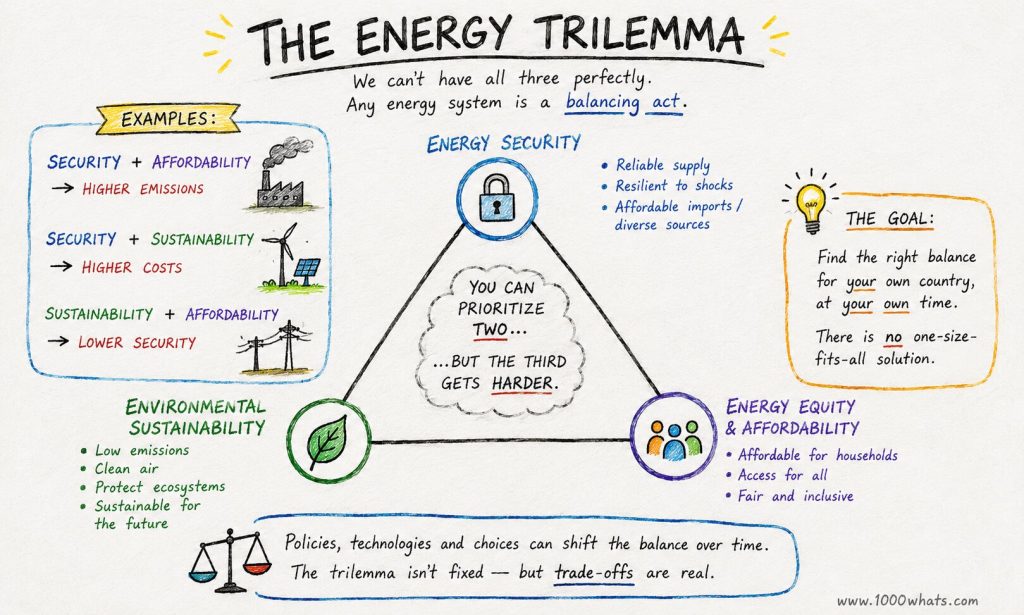 THE ENERGY TRILEMMA
We can't have all three perfectly.
Any energy system is a balancing act.
EXAMPLES:
SECURITY + AFFORDABILITY
→ HIGHER EMISSIONS
SECURITY + SUSTAINABILITY
→ HIGHER COSTS
SUSTAINABILITY + AFFORDABILITY
→ LOWER SECURITY
ENERGY SECURITY
• Reliable supply
• Resilient to shocks
• Affordable imports /
diverse sources
THE GOAL:
Find the right balance
for your own country,
at your own time.
There is no one-size-
fits-all solution.
YOU CAN
PRIORITIZE
TWO...
...BUT THE THIRD
GETS HARDER.
ENVIRONMENTAL
SUSTAINABILITY
• Low emissions
• Clean air
• Protect ecosystems
• Sustainable for
the future
ENERGY EQUITY
& AFFORDABILITY
• Affordable for households
• Access for all
• Fair and inclusive
Policies, technologies and choices can shift the balance over time.
The trilemma isn't fixed — but trade-offs are real.
www.1000whats.com